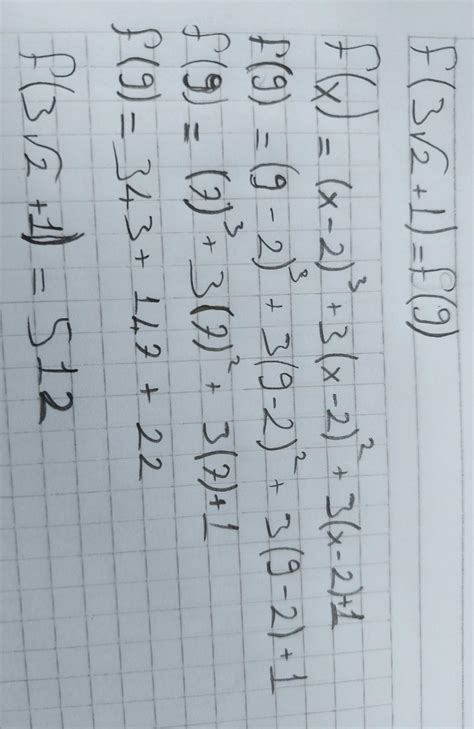 f(3√2+1)=f(9)
f(x)=(x-2)³+3(x-2)²+3(x-2)+1
f(9)=(9-2)³+3(9-2)²+3(9-2)+1
f(9)=(7)³+3(7)²+3(7)+1
f(9)=343+147+22
f(3√2+1)=512